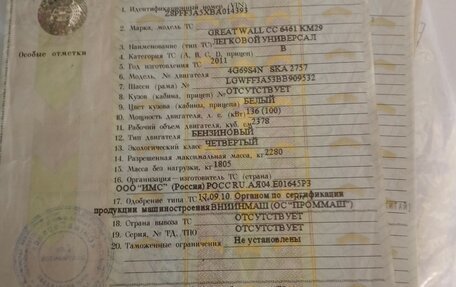 1. Идентификационный номер (VIN) Z8PFF3A5XBA014393
2. Марка, модель ТС GREAT WALL CC 6461 KM29
3. Наименование (тип ТС) ЛЕГКОВОЙ УНИВЕРСАЛ
Особые отметки
4. Категория ТС (A, B, C, D, прицеп) B
5. Год изготовления ТС 2011
6. Модель, № двигателя 4G69S4N SKA 2757
7. Шасси (рама) № LGWFF3A53BB909532
8. Кузов (кабина, прицеп) № ОТСУТСТВУЕТ
9. Цвет кузова (кабины, прицепа) БЕЛЫЙ
10. Мощность двигателя, л. с. (кВт) 136 (100)
11. Рабочий объем двигателя, куб. см 2378
12. Тип двигателя БЕНЗИНОВЫЙ
13. Экологический класс ЧЕТВЕРТЫЙ
14. Разрешенная максимальная масса, кг 2280
15. Масса без нагрузки, кг 1805
16. Организация—изготовитель ТС (страна)
ООО "ИМС" (Россия) РОСС RU. АЯ04. Е01645Р3
17. Одобрение типа ТС № 17.09.10 Органом по сертификации
продукции машиностроения ВНИИНМАШ (ОС "ПРОММАШ")
18. Страна вывоза ТС ОТСУТСТВУЕТ
19. Серия, № ТД, ТПО ОТСУТСТВУЕТ
20. Таможенные ограничения Не установлены